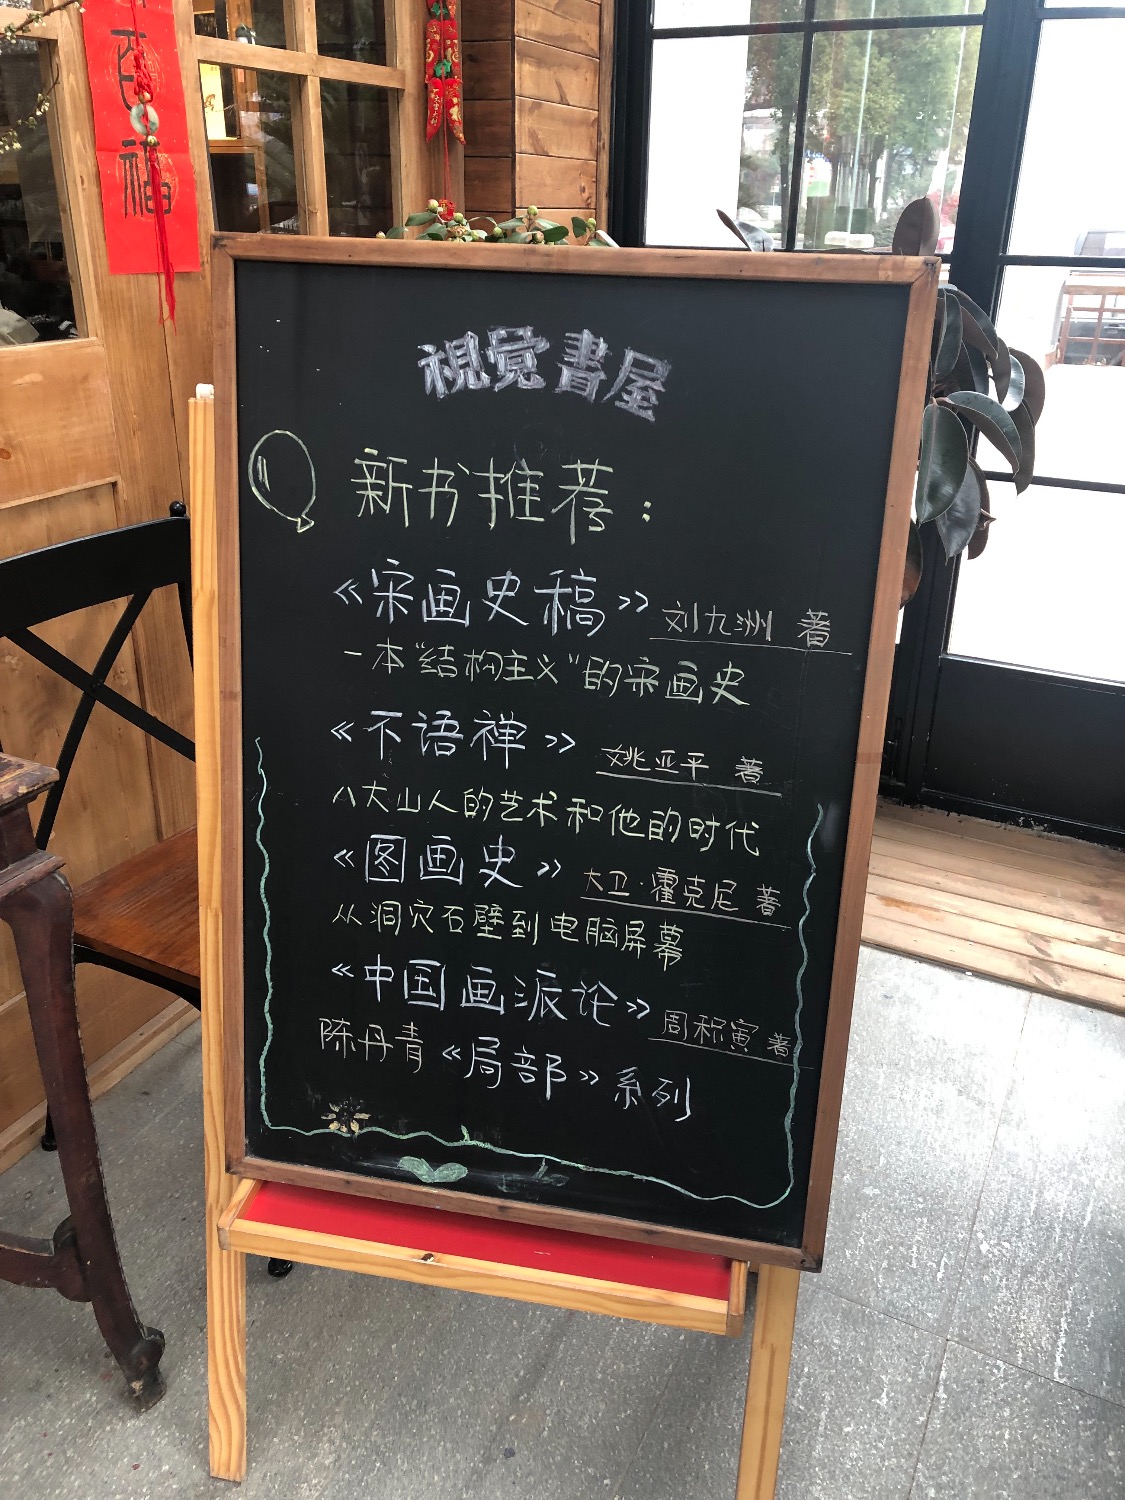 百福
視觉書屋
新书推荐：
《宋画史稿》 刘九洲 著
一本“结构主义”的宋画史
《不语禅》 姚亚平 著
八大山人的艺术和他的时代
《图画史》 大卫·霍克尼 著
从洞穴石壁到电脑屏幕
《中国画派论》 周积寅 著
陈丹青《局部》系列